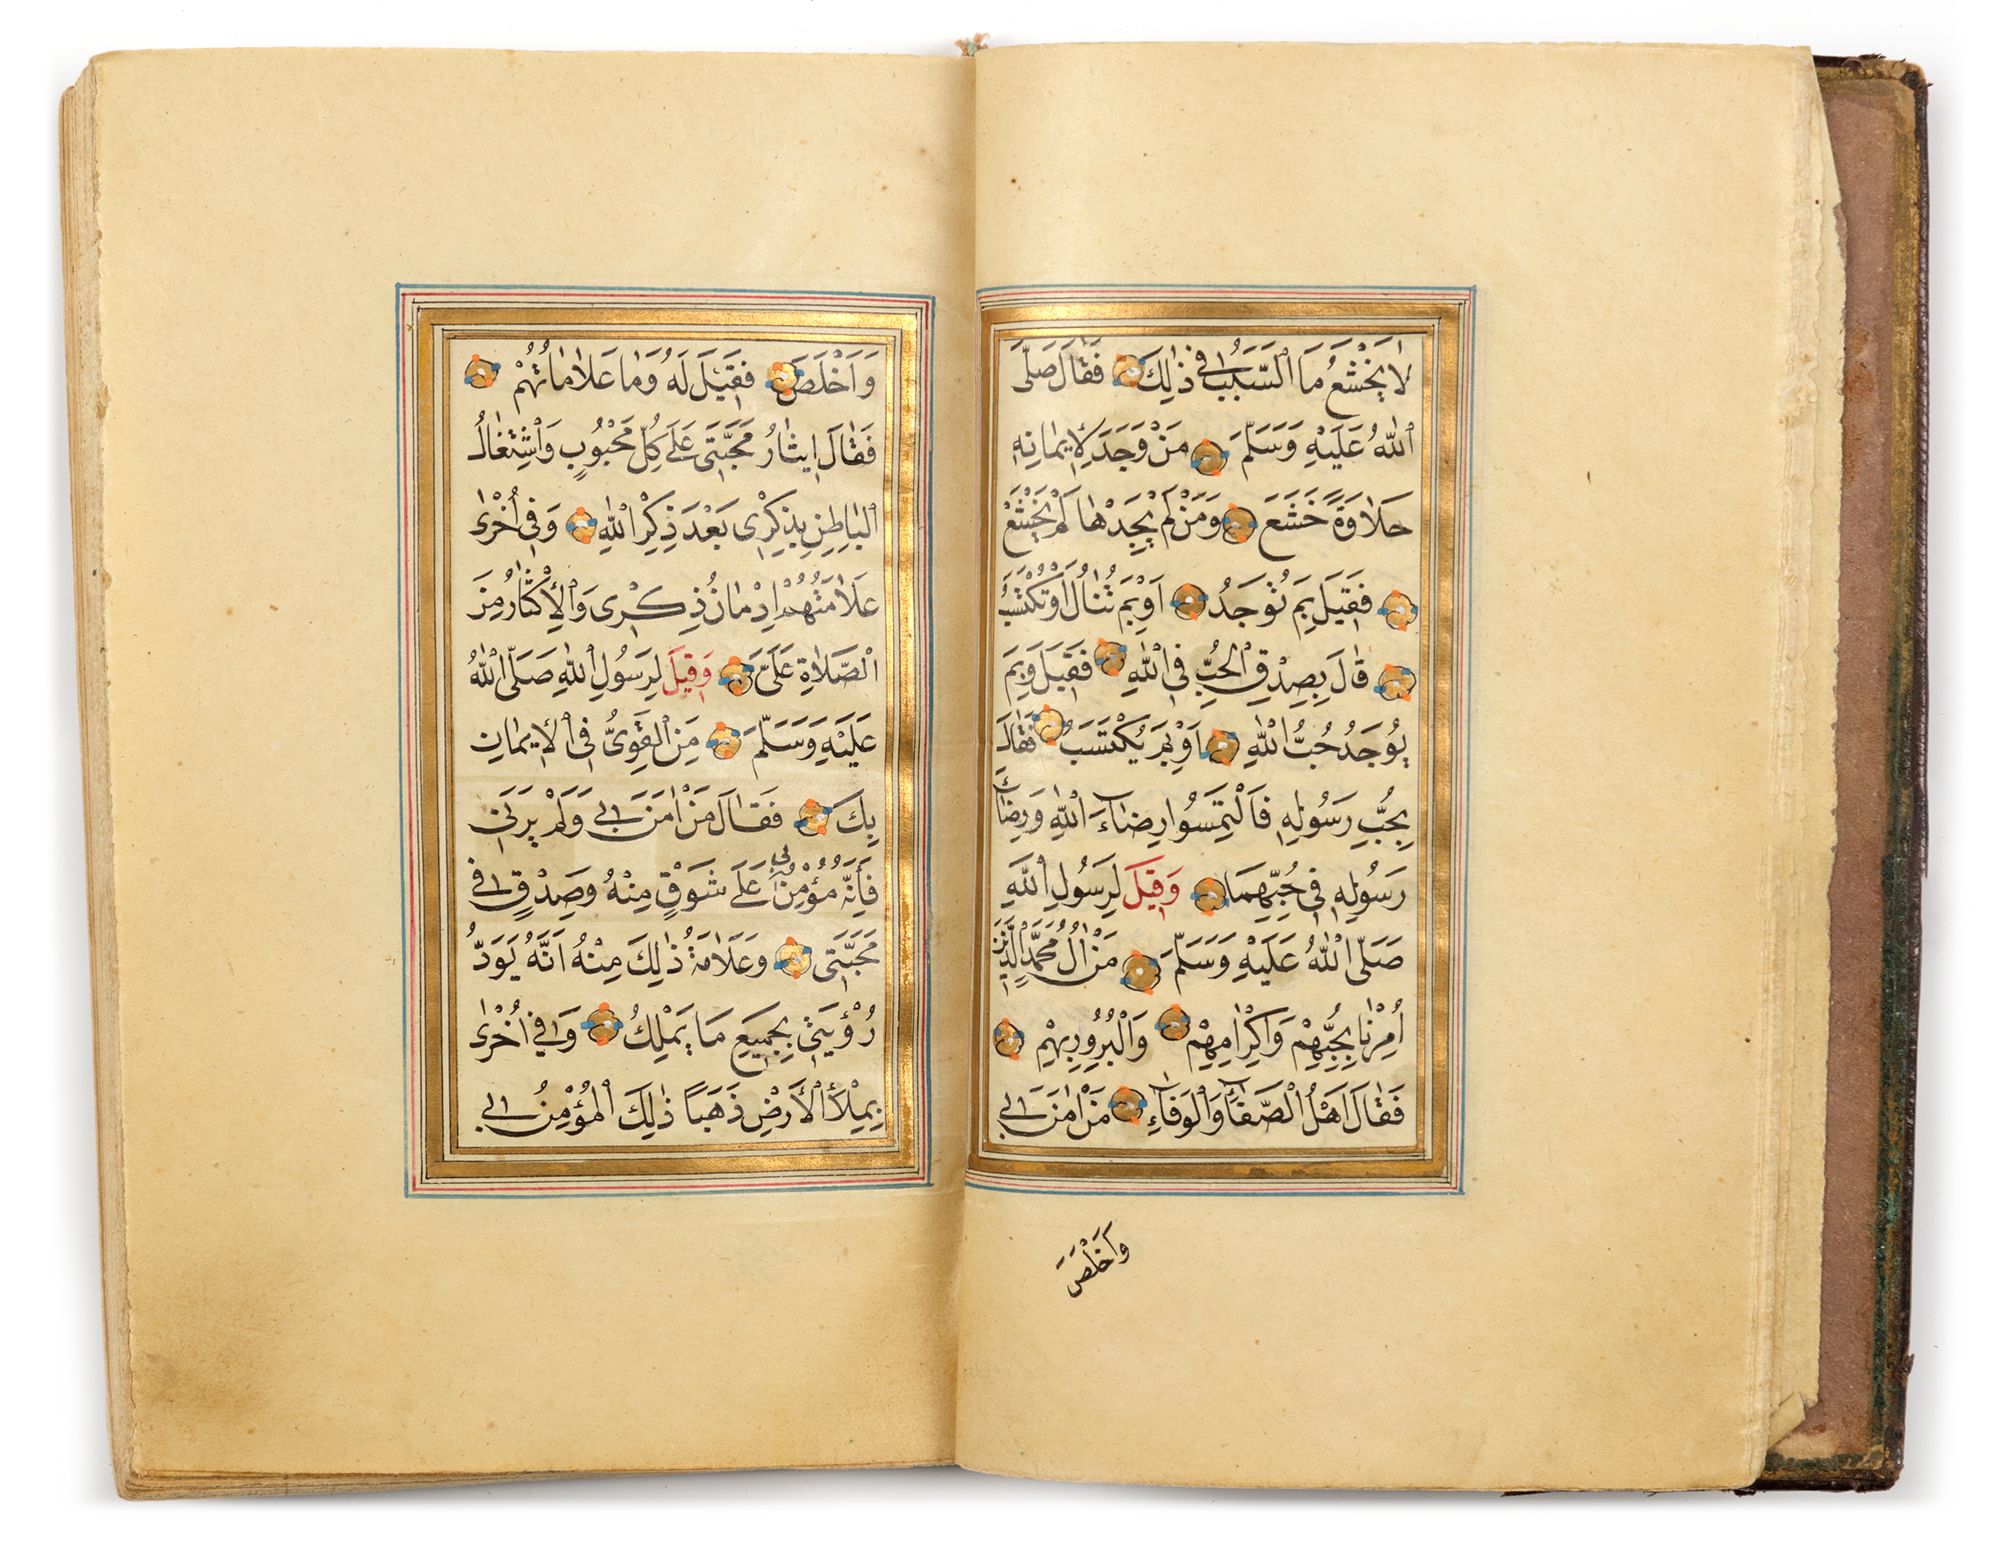 لَا يَخْشَعُ مَا السَّبَبُ فِي ذٰلِكَ فَقَالَ صَلَّى
اللّٰهُ عَلَيْهِ وَسَلَّمَ مَنْ وَجَدَ لِإِيمَانِهِ
حَلَاوَةً خَشَعَ وَمَنْ لَمْ يَجِدْهَا لَمْ يَخْشَعْ
فَقِيلَ بِمَ تُوجَدُ اَوْ بِمَ تُنَالُ اَوْ تُكْتَسَبُ
قَالَ بِصِدْقِ الْحُبِّ فِي اللّٰهِ فَقِيلَ وَبِمَ
يُوجَدُ حُبُّ اللّٰهِ اَوْ بِمَ يُكْتَسَبُ فَقَالَ
بِحُبِّ رَسُولِهِ فَالْتَمِسُوا رِضَاءَ اللّٰهِ وَرِضَاءَ
رَسُولِهِ فِي حُبِّهِمَا وَقِيلَ لِرَسُولِ اللّٰهِ
صَلَّى اللّٰهُ عَلَيْهِ وَسَلَّمَ مَنْ اٰلُ مُحَمَّدٍ الَّذِينَ
اُمِرْنَا بِحُبِّهِمْ وَاِكْرَامِهِمْ وَالْبُرُورِ بِهِمْ
فَقَالَ اَهْلُ الصَّفَاءِ وَالْوَفَاءِ مَنْ اٰمَنَ بِي
وَاَخْلَصَ
وَاَخْلَصَ فَقِيلَ لَهُ وَمَا عَلَامَاتُهُمْ
فَقَالَ اِيثَارُ مَحَبَّتِي عَلَى كُلِّ مَحْبُوبٍ وَاشْتِغَالُ
الْبَاطِنِ بِذِكْرِي بَعْدَ ذِكْرِ اللّٰهِ وَفِي اُخْرٰى
عَلَامَتُهُمْ اِدْمَانُ ذِكْرِي وَالْإِكْثَارُ مِنَ
الصَّلَاةِ عَلَيَّ وَقِيلَ لِرَسُولِ اللّٰهِ صَلَّى اللّٰهُ
عَلَيْهِ وَسَلَّمَ مَنِ الْقَوِيُّ فِي الْإِيمَانِ
بِكَ فَقَالَ مَنْ اٰمَنَ بِي وَلَمْ يَرَنِي
فَإِنَّهُ مُؤْمِنٌ بِي عَلَى شَوْقٍ مِنْهُ وَصِدْقٍ فِي
مَحَبَّتِي وَعَلَامَةُ ذٰلِكَ مِنْهُ اَنَّهُ يَوَدُّ
رُؤْيَتِي بِجَمِيعِ مَا يَمْلِكُ وَفِي اُخْرٰى
بِمِلْأِ الْأَرْضِ ذَهَبًا ذٰلِكَ الْمُؤْمِنُ بِي